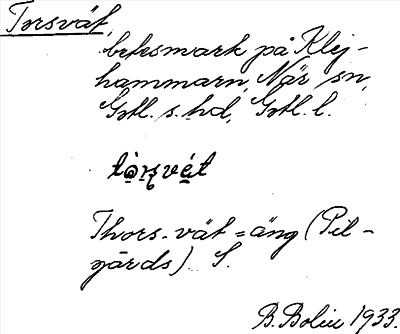 Torsvät,
betesmark på Klej-
hammarn, När sn,
Gotl. s. hd, Gotl. l.
tò̱ʂvé̱t
Thors-vät = äng (Pil-
gårds) S.
B. Bolin 1933.